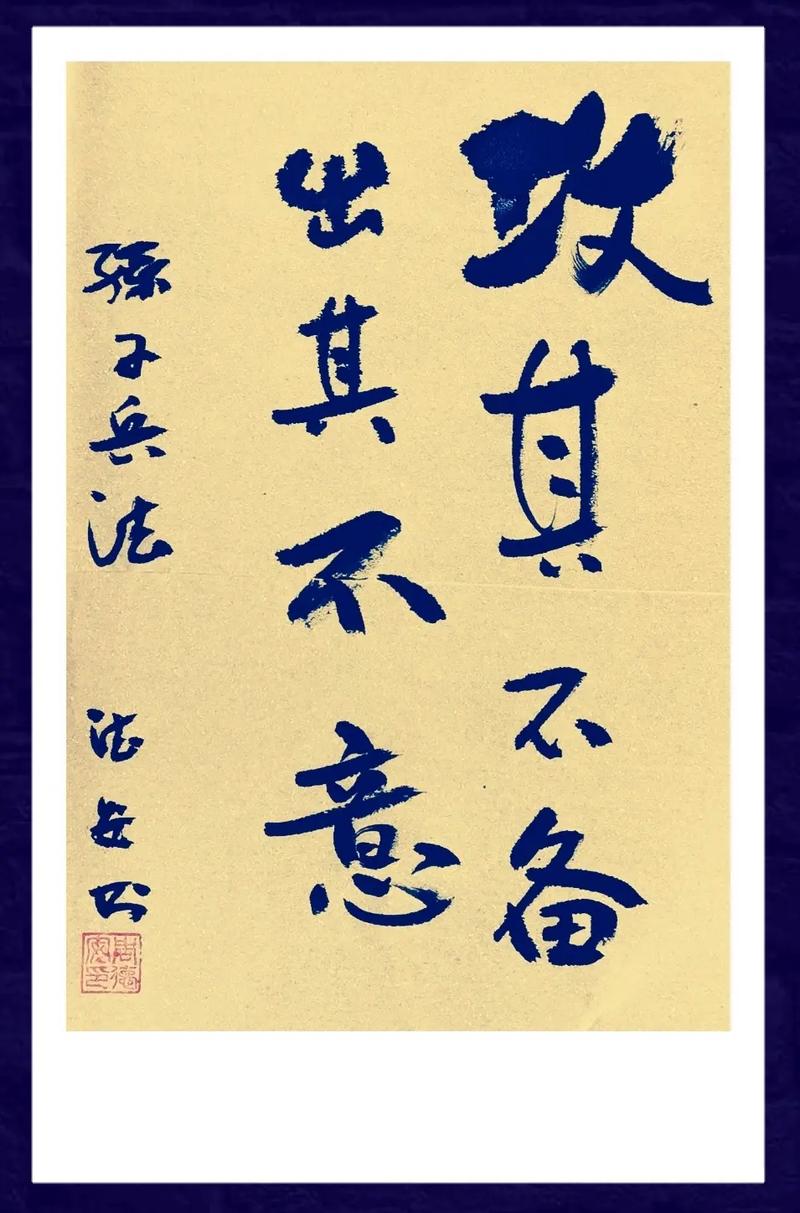 攻其不备
出其不意
孫子兵法
德安书